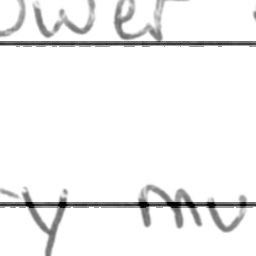 ower
y mu